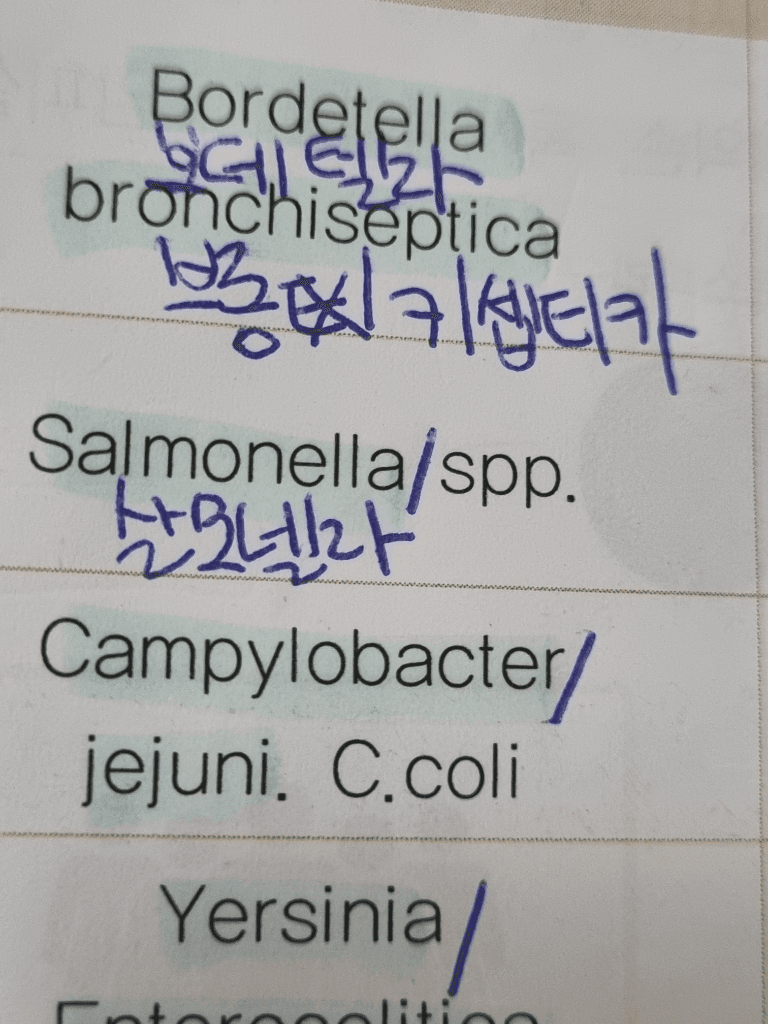 Bordetella
보데텔라
bronchiseptica
봉키셉티카
Salmonella/spp.
살모넬라
Campylobacter/
jejuni. C.coli
Yersinia/
Enterocolitica